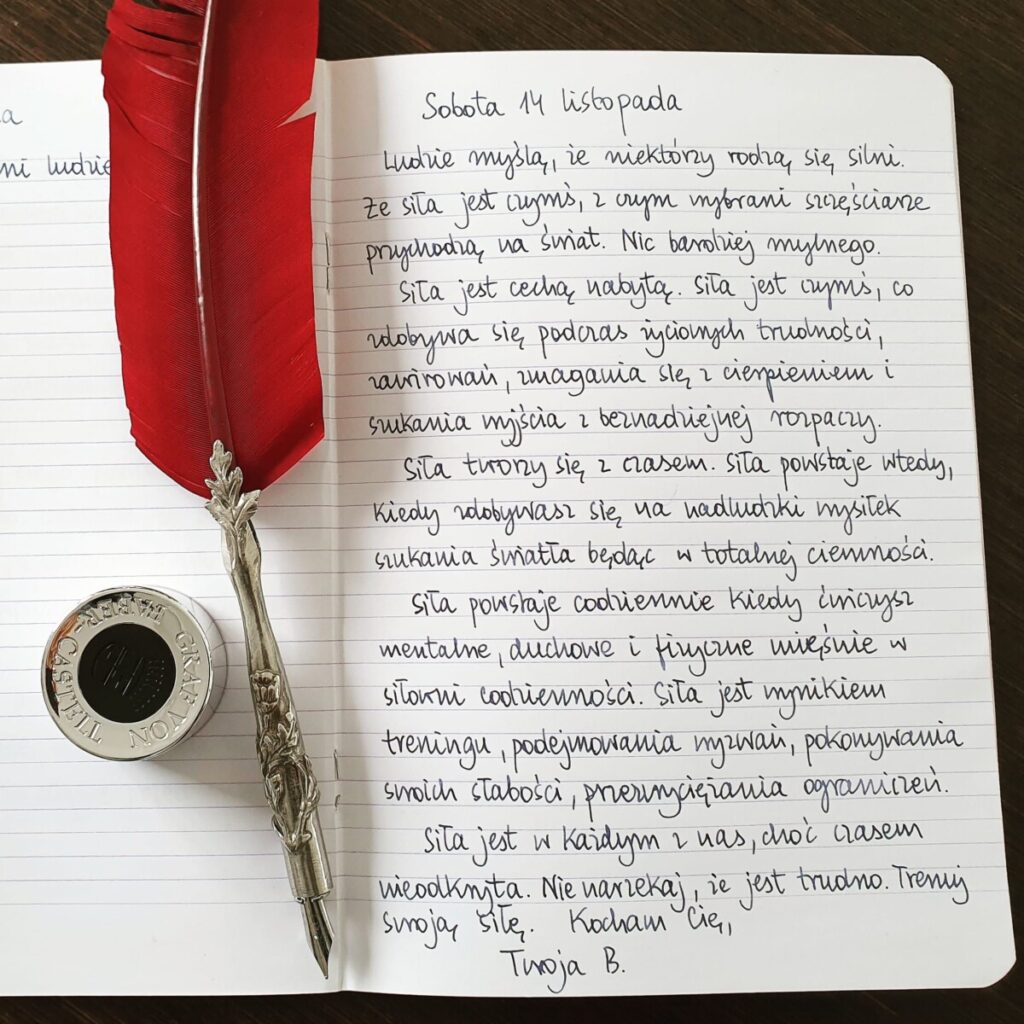 a
mi ludzie
Sobota 14 listopada
Ludzie myślą, że niektórzy rodzą się silni.
Że siła jest czymś, z czym wybrani szczęściarze
przychodzą na świat. Nic bardziej mylnego.
Siła jest cechą nabytą. Siła jest czymś, co
zdobywa się podczas życiowych trudności,
zawirowań, zmagania się z cierpieniem i
szukania wyjścia z beznadziejnej rozpaczy.
Siła tworzy się z czasem. Siła powstaje wtedy,
kiedy zdobywasz się na nadludzki wysiłek
szukania światła będąc w totalnej ciemności.
Siła powstaje codziennie kiedy ćwiczysz
mentalne, duchowe i fizyczne mięśnie w
siłowni codzienności. Siła jest wynikiem
treningu, podejmowania wyzwań, pokonywania
swoich słabości, przezwyciężania ograniczeń.
Siła jest w każdym z nas, choć czasem
nieodkryta. Nie narzekaj, że jest trudno. Trenuj
swoją siłę. Kocham Cię,
Twoja B.
GRAF VON FABER-CASTELL